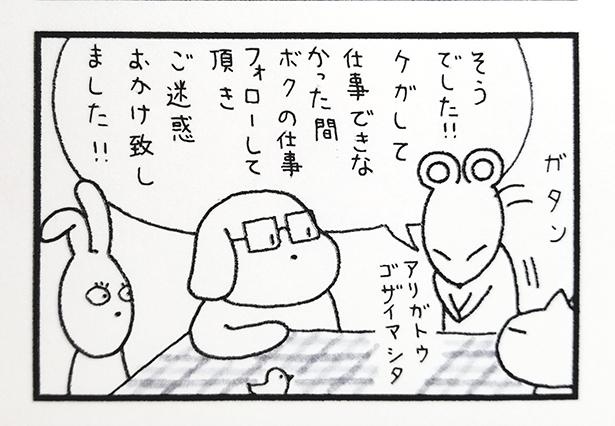 そう
でした!!
ケガして
仕事できな
かった間
ボクの仕事
フォローして
頂き
ご迷惑
おかけ致し
ました!!
ガタン
アリガトウ
ゴザイマシタ